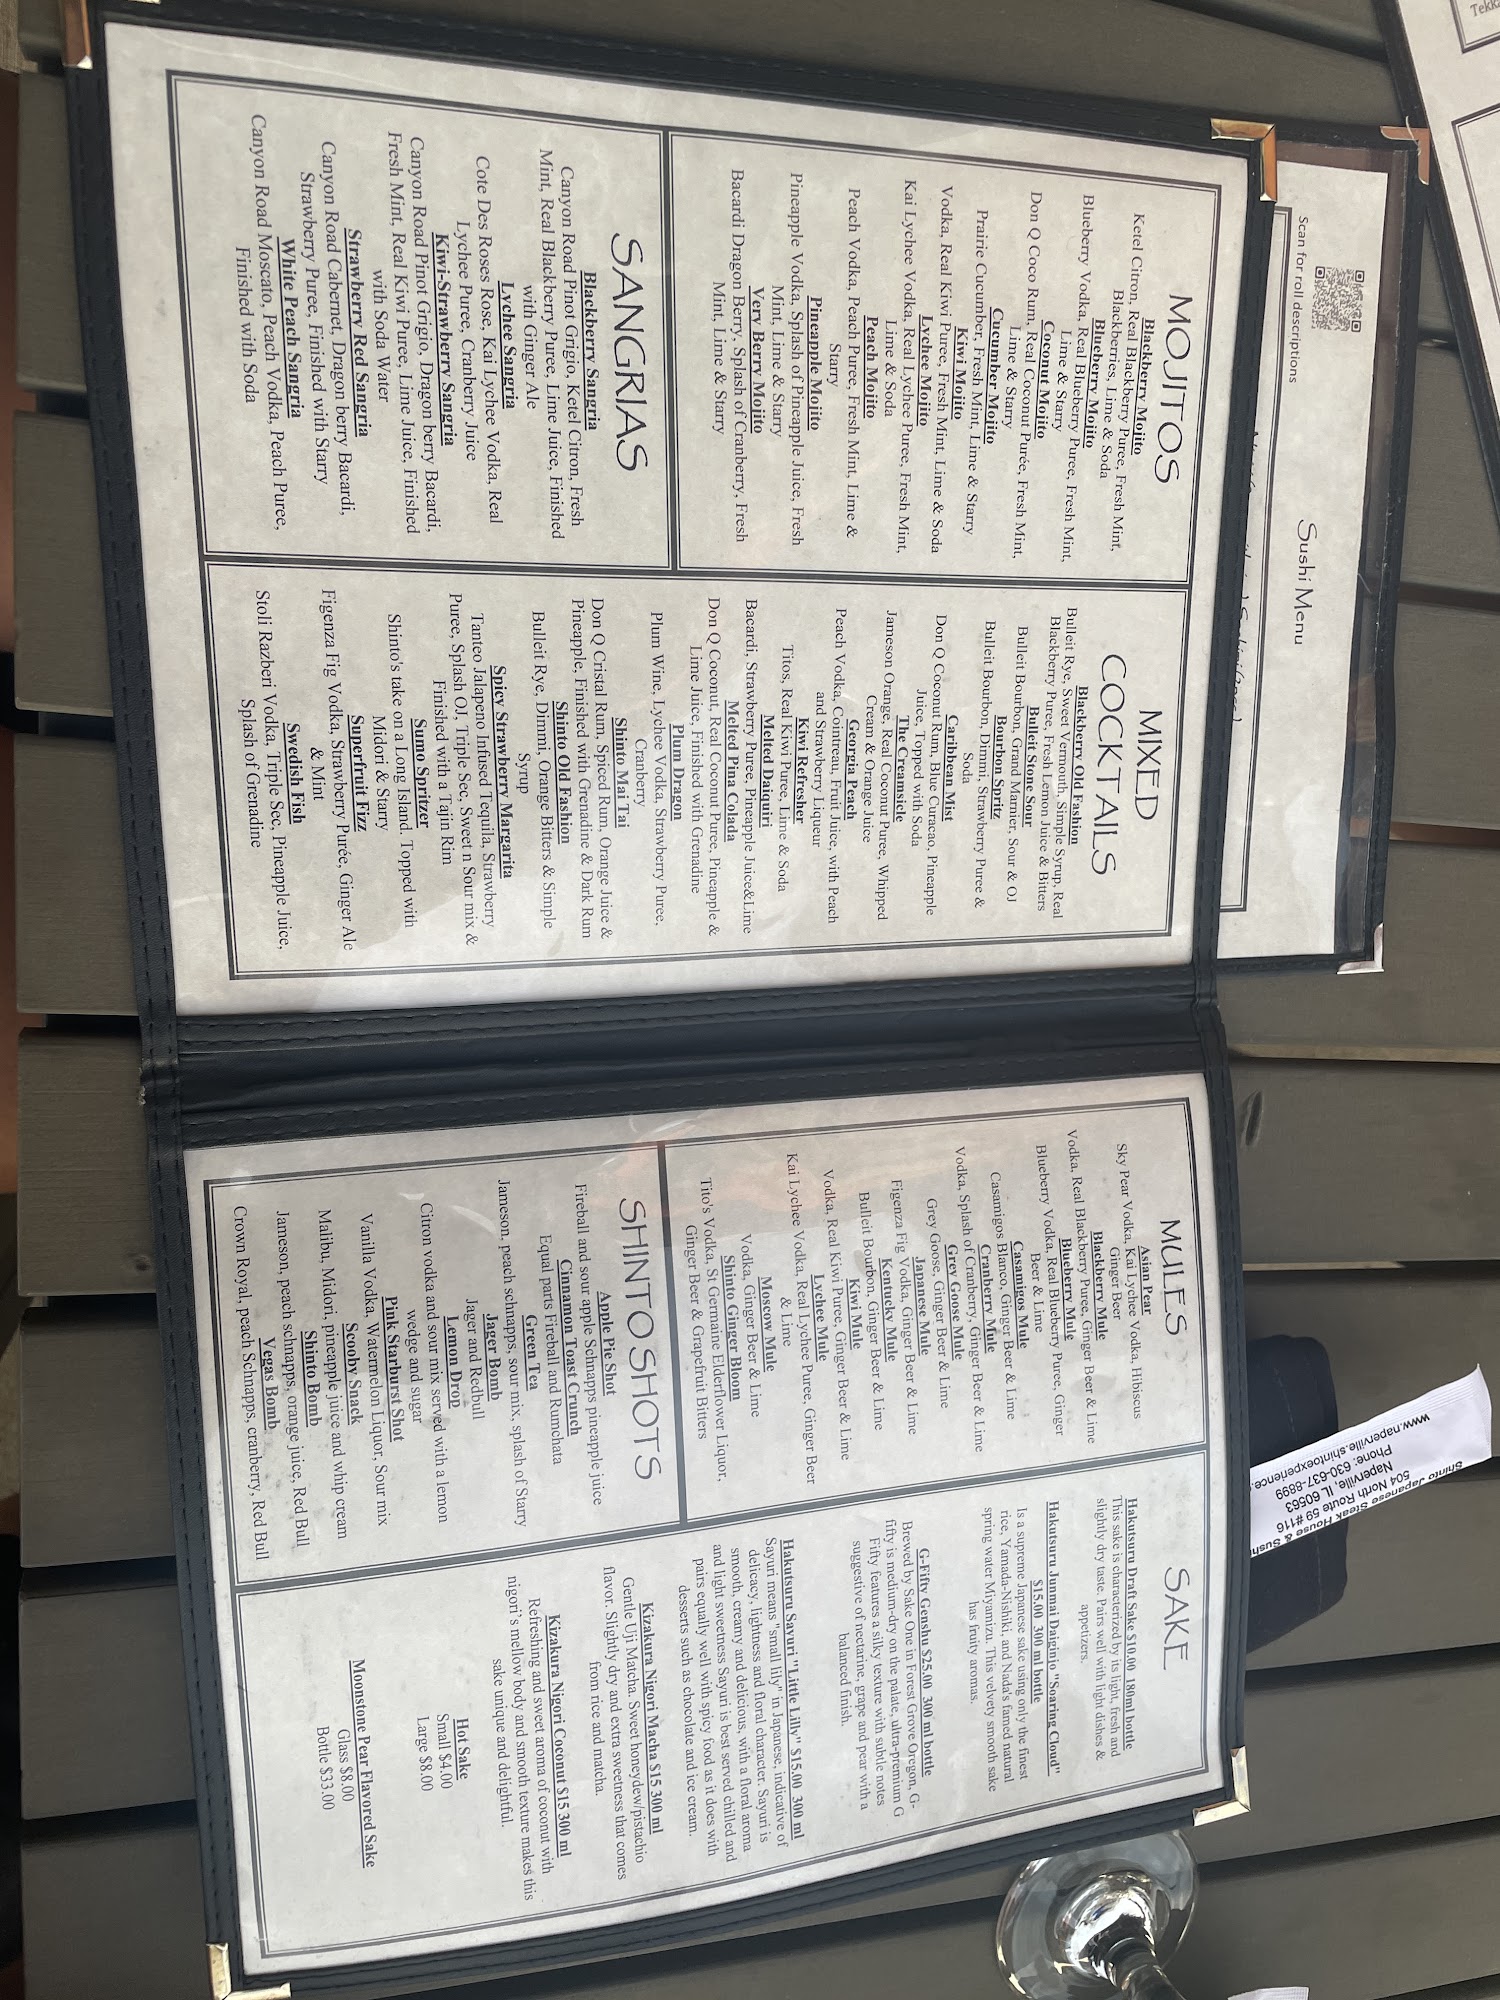 MOJITOS
Blackberry Mojito
Ketel Citron, Real Blackberry Puree, Fresh Mint,
Blackberries, Lime & Soda
Blueberry Mojito
Blueberry Vodka, Real Blueberry Puree, Fresh Mint,
Lime & Starry
Coconut Mojito
Don Q Coco Rum, Real Coconut Purée, Fresh Mint,
Lime & Starry
Cucumber Mojito
Prairie Cucumber, Fresh Mint, Lime & Starry
Kiwi Mojito
Vodka, Real Kiwi Puree, Fresh Mint, Lime & Soda
Lychee Mojito
Kai Lychee Vodka, Real Lychee Puree, Fresh Mint,
Lime & Soda
Peach Mojito
Peach Vodka, Peach Puree, Fresh Mint, Lime &
Starry
Pineapple Mojito
Pineapple Vodka, Splash of Pineapple Juice, Fresh
Mint, Lime & Starry
Very Berry Mojito
Bacardi Dragon Berry, Splash of Cranberry, Fresh
Mint, Lime & Starry
SANGRIAS
Blackberry Sangria
Canyon Road Pinot Grigio, Ketel Citron, Fresh
Mint, Real Blackberry Puree, Lime Juice, Finished
with Ginger Ale
Lychee Sangria
Cote Des Roses Rose, Kai Lychee Vodka, Real
Lychee Puree, Cranberry Juice
Kiwi-Strawberry Sangria
Canyon Road Pinot Grigio, Dragon berry Bacardi,
Fresh Mint, Real Kiwi Puree, Lime Juice, Finished
with Soda Water
Strawberry Red Sangria
Canyon Road Cabernet, Dragon berry Bacardi,
Strawberry Puree, Finished with Starry
White Peach Sangria
Canyon Road Moscato, Peach Vodka, Peach Puree,
Finished with Soda
MIXED
COCKTAILS
Blackberry Old Fashion
Bulleit Rye, Sweet Vermouth, Simple Syrup, Real
Blackberry Puree, Fresh Lemon Juice & Bitters
Bulleit Stone Sour
Bulleit Bourbon, Grand Marnier, Sour & OJ
Bourbon Spritz
Bulleit Bourbon, Dimmi, Strawberry Puree &
Soda
Caribbean Mist
Don Q Coconut Rum, Blue Curacao, Pineapple
Juice, Topped with Soda
The Creamsicle
Jameson Orange, Real Coconut Puree, Whipped
Cream & Orange Juice
Georgia Peach
Peach Vodka, Cointreau, Fruit Juice, with Peach
and Strawberry Liqueur
Kiwi Refresher
Titos, Real Kiwi Puree, Lime & Soda
Melted Daiquiri
Bacardi, Strawberry Puree, Pineapple Juice&Lime
Melted Pina Colada
Don Q Coconut, Real Coconut Puree, Pineapple &
Lime Juice, Finished with Grenadine
Plum Dragon
Plum Wine, Lychee Vodka, Strawberry Puree,
Cranberry
Shinto Mai Tai
Don Q Cristal Rum, Spiced Rum, Orange Juice &
Pineapple, Finished with Grenadine & Dark Rum
Shinto Old Fashion
Bulleit Rye, Dimmi, Orange Bitters & Simple
Syrup
Spicy Strawberry Margarita
Tanteo Jalapeno Infused Tequila, Strawberry
Puree, Splash OJ, Triple Sec, Sweet n Sour mix &
Finished with a Tajin Rim
Sumo Spritzer
Shinto's take on a Long Island, Topped with
Midori & Starry
Superfruit Fizz
Figenza Fig Vodka, Strawberry Purée, Ginger Ale
& Mint
Swedish Fish
Stoli Razberi Vodka, Triple Sec, Pineapple Juice,
Splash of Grenadine
MULES
Asian Pear
Sky Pear Vodka, Kai Lychee Vodka, Hibiscus
Ginger Beer
Blackberry Mule
Vodka, Real Blackberry Puree, Ginger Beer & Lime
Blueberry Mule
Blueberry Vodka, Real Blueberry Puree, Ginger
Beer & Lime
Casamigos Mule
Casamigos Blanco, Ginger Beer & Lime
Cranberry Mule
Vodka, Splash of Cranberry, Ginger Beer & Lime
Grey Goose Mule
Grey Goose, Ginger Beer & Lime
Japanese Mule
Figenza Fig Vodka, Ginger Beer & Lime
Kentucky Mule
Bulleit Bourbon, Ginger Beer & Lime
Kiwi Mule
Vodka, Real Kiwi Puree, Ginger Beer & Lime
Lychee Mule
Kai Lychee Vodka, Real Lychee Puree, Ginger Beer
& Lime
Moscow Mule
Vodka, Ginger Beer & Lime
Shinto Ginger Bloom
Tito's Vodka, St Germaine Elderflower Liquor,
Ginger Beer & Grapefruit Bitters
SHINTO SHOTS
Apple Pie Shot
Fireball and sour apple Schnapps pineapple juice
Cinnamon Toast Crunch
Equal parts Fireball and Rumchata
Green Tea
Jameson, peach schnapps, sour mix, splash of Starry
Jager Bomb
Jager and Redbull
Lemon Drop
Citron vodka and sour mix served with a lemon
wedge and sugar
Pink Starburst Shot
Vanilla Vodka, Watermelon Liquor, Sour mix
Scooby Snack
Malibu, Midori, pineapple juice and whip cream
Shinto Bomb
Jameson, peach schnapps, orange juice, Red Bull
Vegas Bomb
Crown Royal, peach Schnapps, cranberry, Red Bull
SAKE
Hakutsuru Draft Sake $10.00 180ml bottle
This sake is characterized by its light, fresh and
slightly dry taste. Pairs well with light dishes &
appetizers.
Hakutsuru Junmai Daiginjo "Soaring Cloud"
$15.00 300 ml bottle
Is a supreme Japanese sake using only the finest
rice, Yamada-Nishiki, and Nada's famed natural
spring water Miyamizu. This velvety smooth sake
has fruity aromas.
G-Fifty Genshu $25.00 300 ml bottle
Brewed by Sake One in Forest Grove Oregon, G-
fifty is medium-dry on the palate, ultra-premium G
Fifty features a silky texture with subtle notes
suggestive of nectarine, grape and pear with a
balanced finish.
Hakutsuru Sayuri "Little Lilly" $15.00 300 ml
Sayuri means "small lily" in Japanese, indicative of
delicacy, lightness and floral character. Sayuri is
smooth, creamy and delicious, with a floral aroma
and light sweetness Sayuri is best served chilled and
pairs equally well with spicy food as it does with
desserts such as chocolate and ice cream.
Kizakura Nigori Macha $15 300 ml
Gentle Uji Matcha. Sweet honeydew/pistachio
flavor. Slightly dry and extra sweetness that comes
from rice and matcha.
Kizakura Nigori Coconut $15 300 ml
Refreshing and sweet aroma of coconut with
nigori's mellow body and smooth texture makes this
sake unique and delightful.
Hot Sake
Small $4.00
Large $8.00
Moonstone Pear Flavored Sake
Glass $8.00
Bottle $33.00
Scan for roll descriptions
Sushi Menu
Shinto Japanese Steak House & Sushi
504 North Route 59 #116
Naperville, IL 60563
Phone: 630-637-8899
www.naperville.shintoexperience.